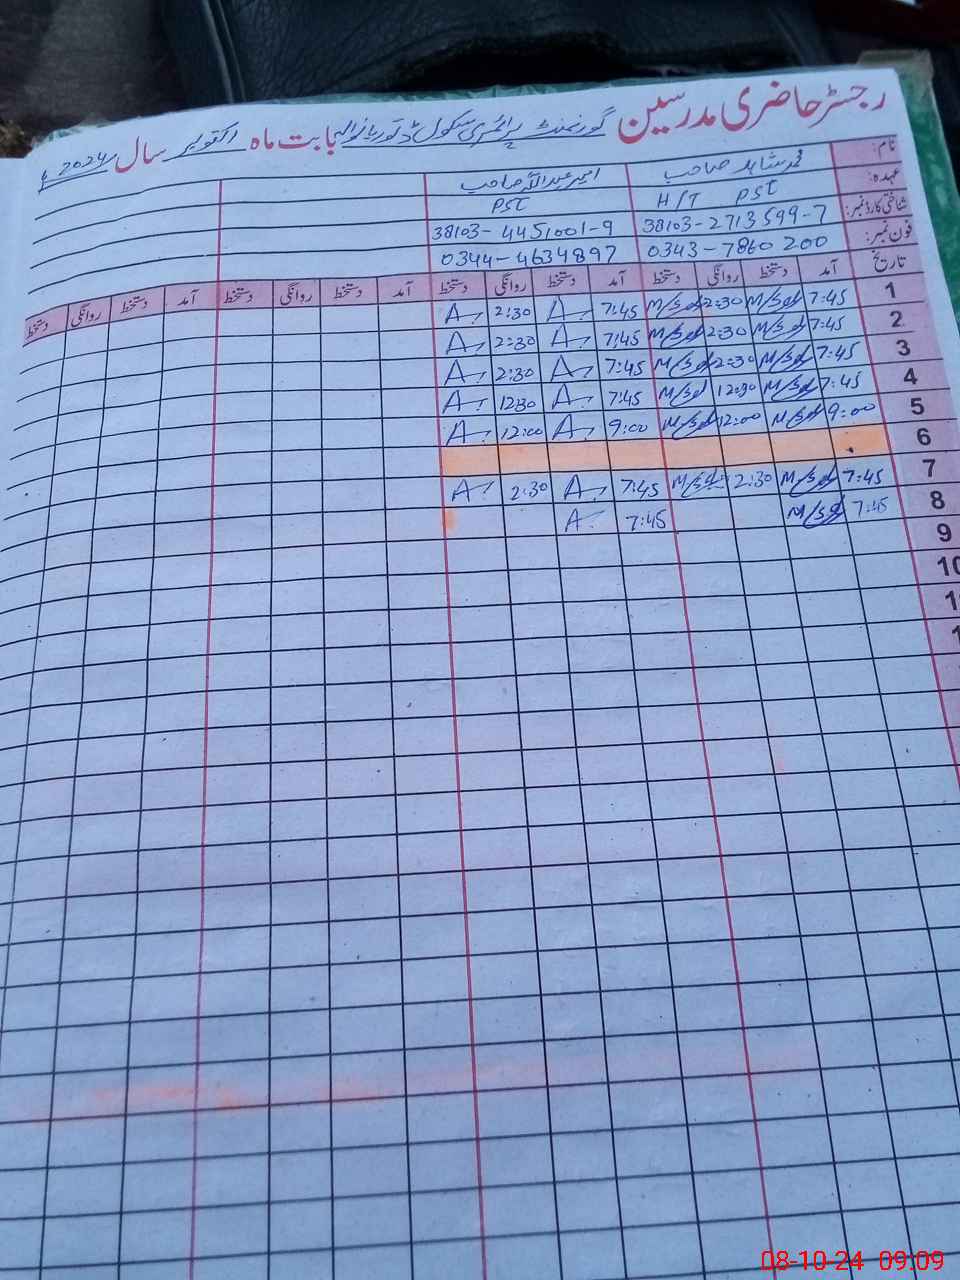 رجسٹر حاضری مدرسین گورنمنٹ پرائمری سکول بابت ماہ اکتوبر سال 2024ء
نام: محمد شاہد صاحب امیر عبداللہ صاحب
عہدہ: H/T PST PST
شناختی کارڈ نمبر: 38103-2713599-7 38103-4451001-9
فون نمبر: 0343-7860200 0344-4634897
تاریخ آمد دستخط روانگی دستخط آمد دستخط روانگی دستخط آمد دستخط روانگی دستخط آمد دستخط روانگی دستخط
1 7:45 M/Sd 2:30 M/Sd 7:45 A 2:30 A
2 7:45 M/Sd 2:30 M/Sd 7:45 A 2:30 A
3 7:45 M/Sd 2:30 M/Sd 7:45 A 2:30 A
4 7:45 M/Sd 12:30 M/Sd 7:45 A 12:30 A
5 9:00 M/Sd 12:00 M/Sd 9:00 A 12:00 A
6
7 7:45 M/Sd 2:30 M/Sd 7:45 A 2:30 A
8 7:45 M/Sd 7:45 A
9
10
08-10-24 09:09